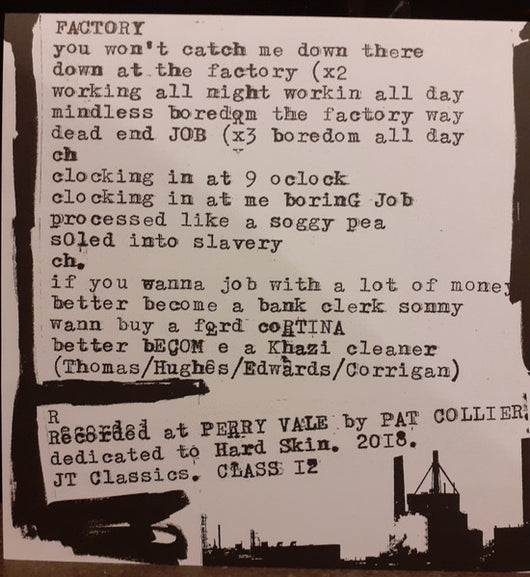 FACTORY
you won't catch me down there
down at the factory (x2
working all night workin all day
mindless boredom the factory way
dead end JOB (x3 boredom all day
ch
clocking in at 9 oclock
clocking in at me borinG Job
processed like a soggy pea
sOled into slavery
ch.
if you wanna job with a lot of money
better become a bank clerk sonny
wann buy a ford coRTINA
better bECOM e a Khazi cleaner
(Thomas/Hughes/Edwards/Corrigan)
R
Recorded at PERRY VALE by PAT COLLIER.
dedicated to Hard Skin. 2018.
JT Classics. CLASS 12